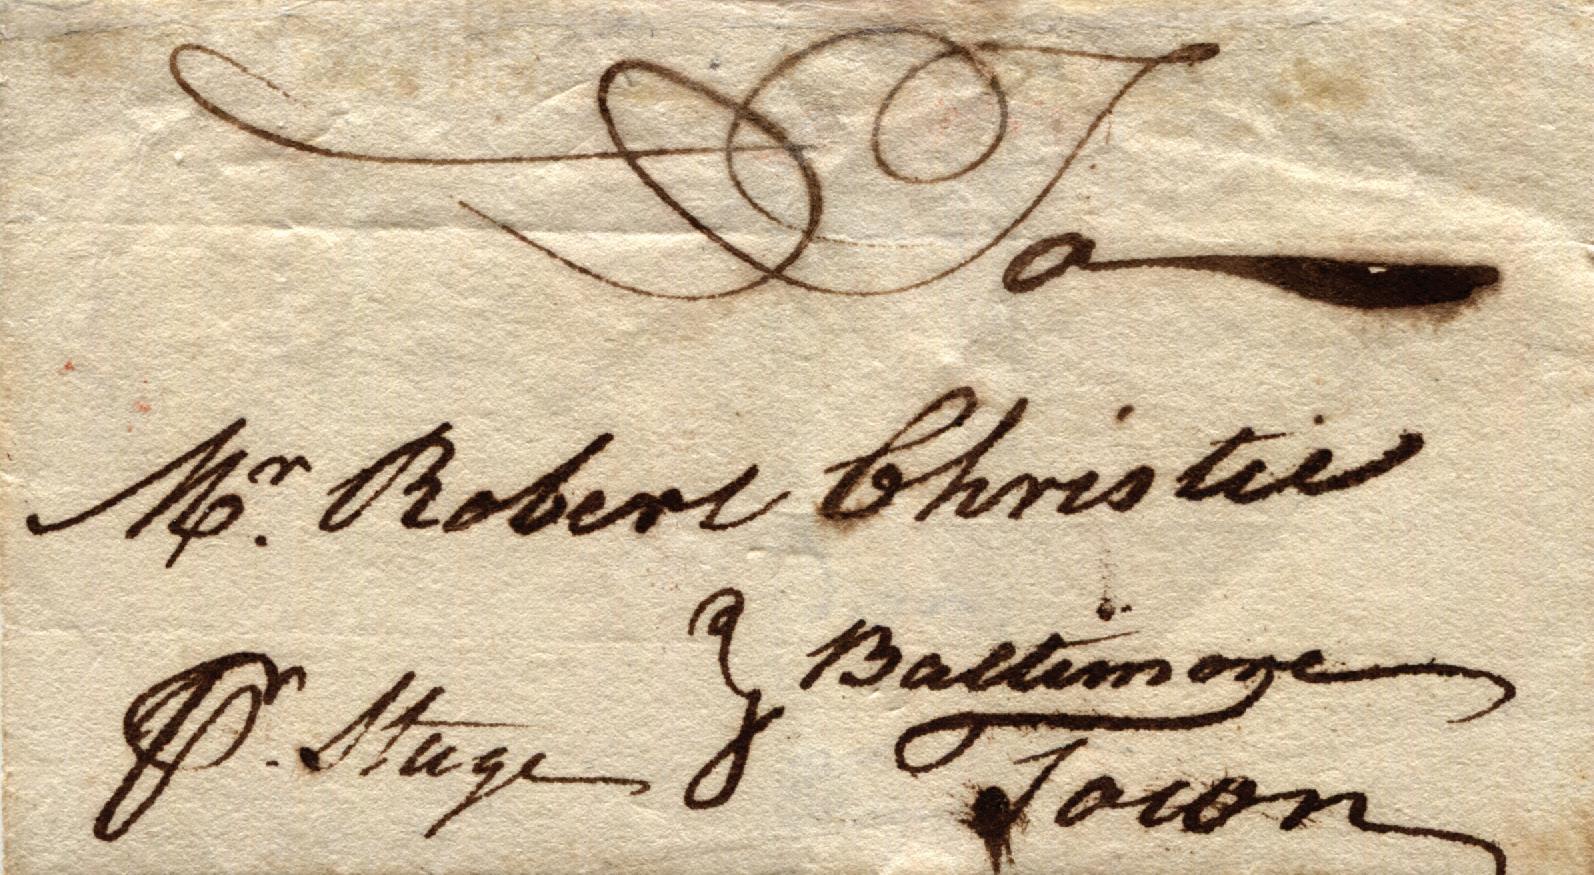 To
Mr. Robert Christie
Baltimore
Pr. Stage
Town